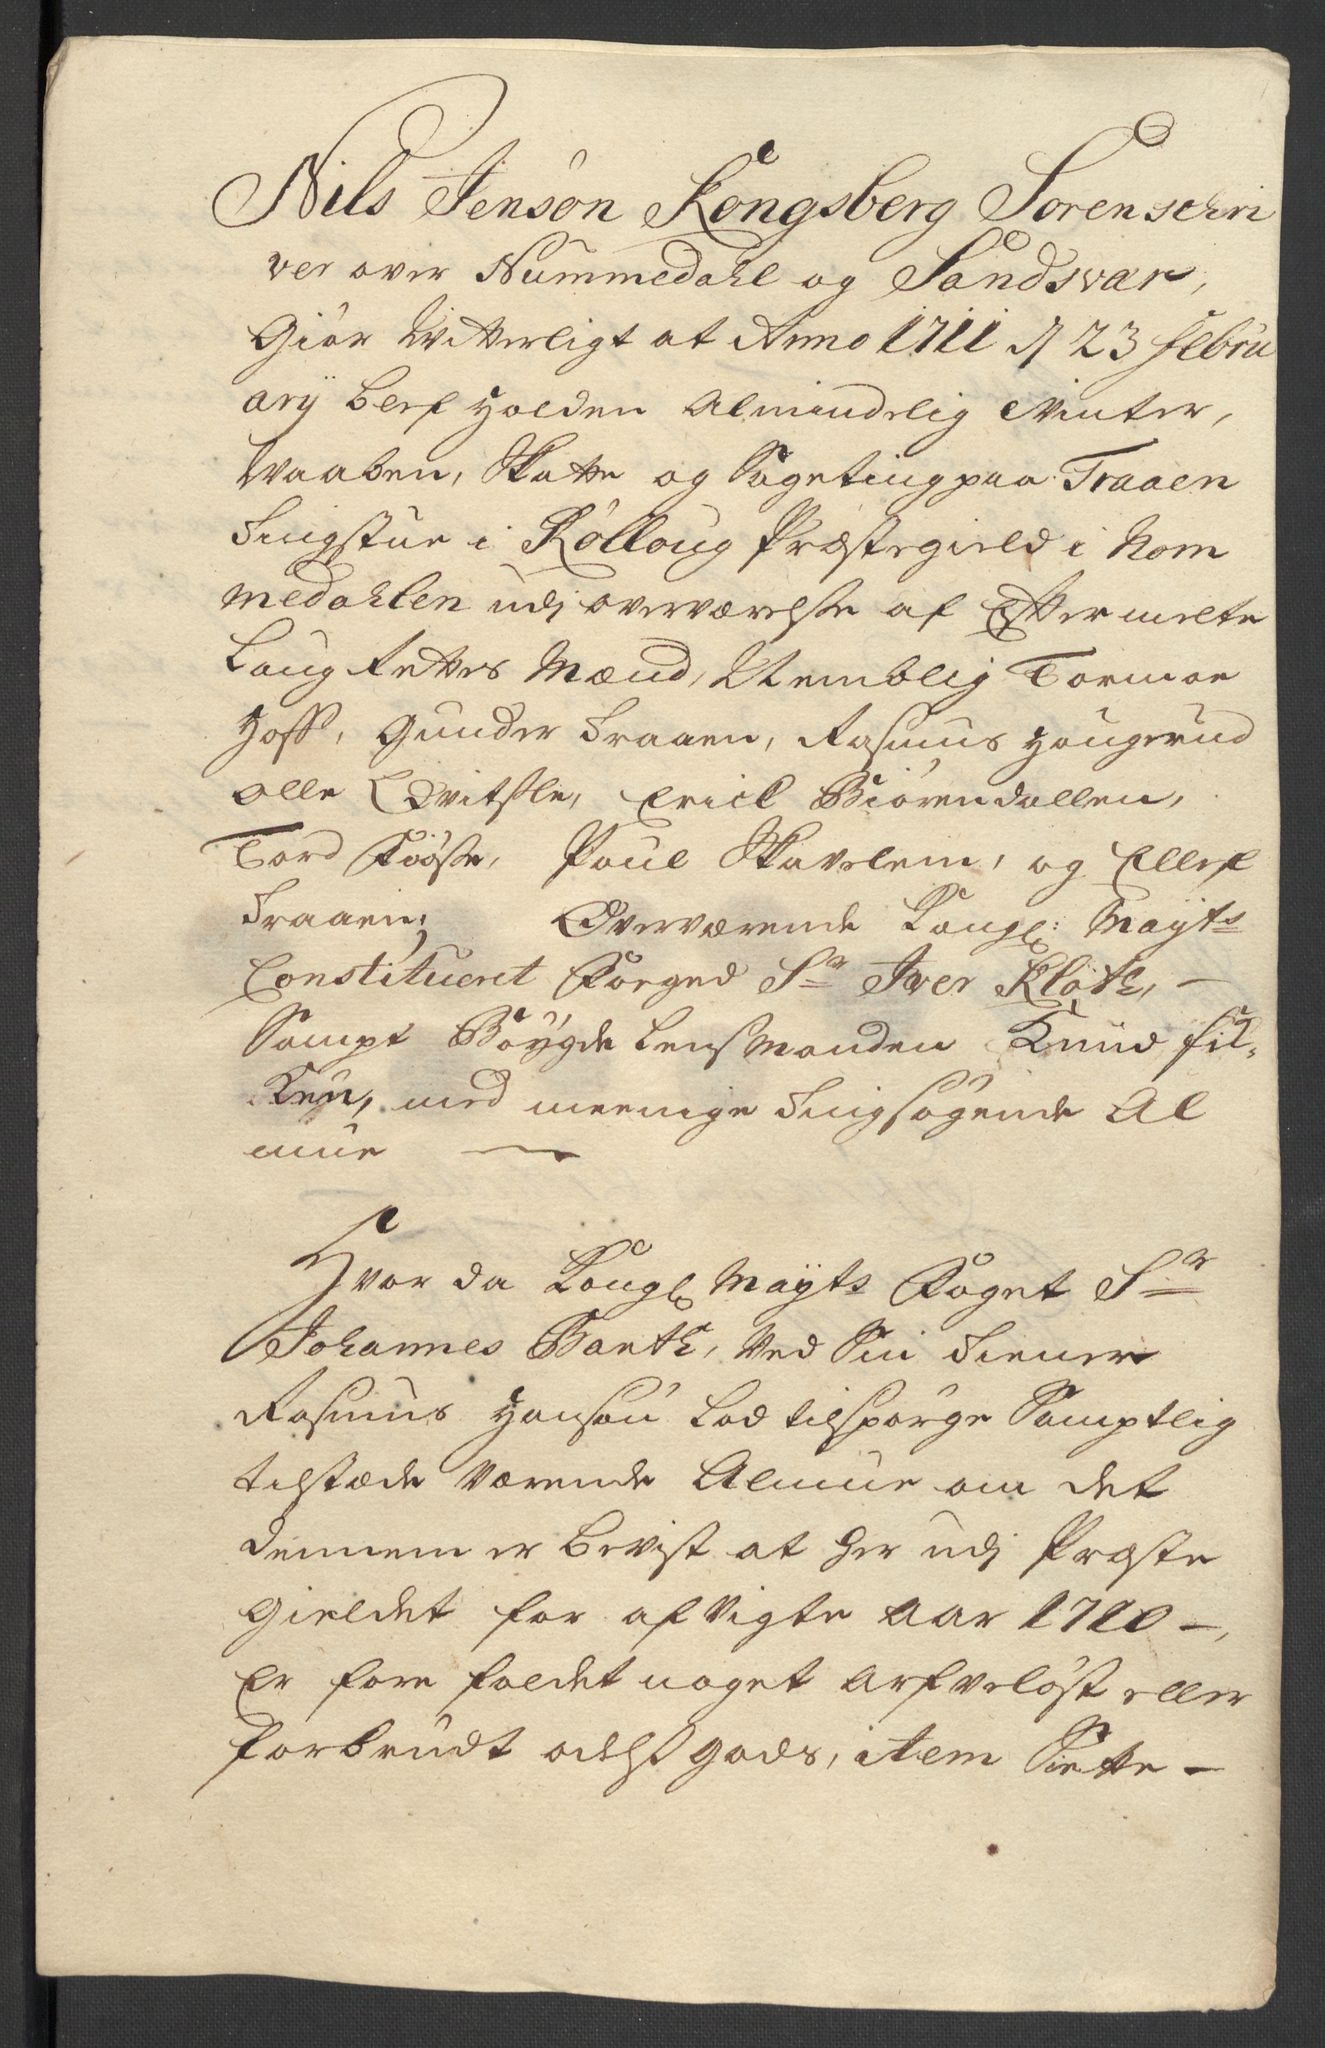 Nils Jensøn Kongsberg Sorenschri
ver over Nummedahl og Sandsvær,
Giør Witterligt at Anno 1711 d 23 Febru
arij blef holden Almindelig Vinter,
Vaaben, Skatte og Sageting paa Traaen
Tingstue i Rølloug Præstegield i Nom
medahlen udj overværelse af Eftermelte
Laug Rettes Mænd, Nemblig Tormoe
Hoff, Gunder Traaen, Rasmus Hougerud
Olle Qvitsle, Erick Biørendallen,
Tord Poul Skavelem, og Ellef
Traaen; Overværende Kongl: Mayts
Constitueret Foeged Sr Iver Kloth,
Sampt Bøygde Lensmanden Knud Ful-
Ken, med meenige Tingsøgende Al
mue
Hvor da Kongl Mayts Foget Sr
Johannes Barth, Ved Sin Tiener
Rasmus Hansøn Lod tilspørge Samptlig
tilstæde Værende Almue om det
dennem er bevist at her udj Præste
Gieldet for afvigte Aar 1710 –,
Er fore faldet noget Arfveløst eller
forbrudt odels gods, item Siette –